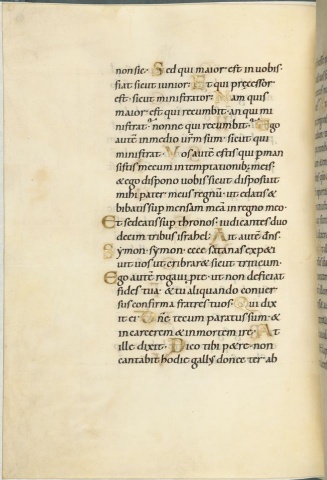 non sic· Sed qui maior est in vobis·
fiat sicut iunior· Et qui preçessor
est· sicut ministrator· Nam quis
maior est qui recumbit· an qui mi
nistrat· nonne qui recumbit· Ego
autē in medio urm̄ sum· sicut qui
ministrat· Vos autē estis qui pman
sistis mecum in temptationib; meis·
& ego dispono uobis sicut disposuit
mihi pater meus regnū· ut edatis &
bibatis sup mensam meā in regno meo·
Et sedeatis sup thronos· iudicantes duo
decim tribus israhel· Ait autē dn̄s·
Symon· symon· ecce satanas exp&i
uit uos ut cribrar& sicut triticum·
Ego autē rogaui p te· ut non deficiat
fides tua· & tu aliquando conuer
sus confirma fratres tuos· Qui dix
it ei· Dn̄e· tecum paratus sum· &
in carcerem & in mortem ire· At
ille dixit· Dico tibi p&re· non
cantabit hodie gallꝰ donec ter ab